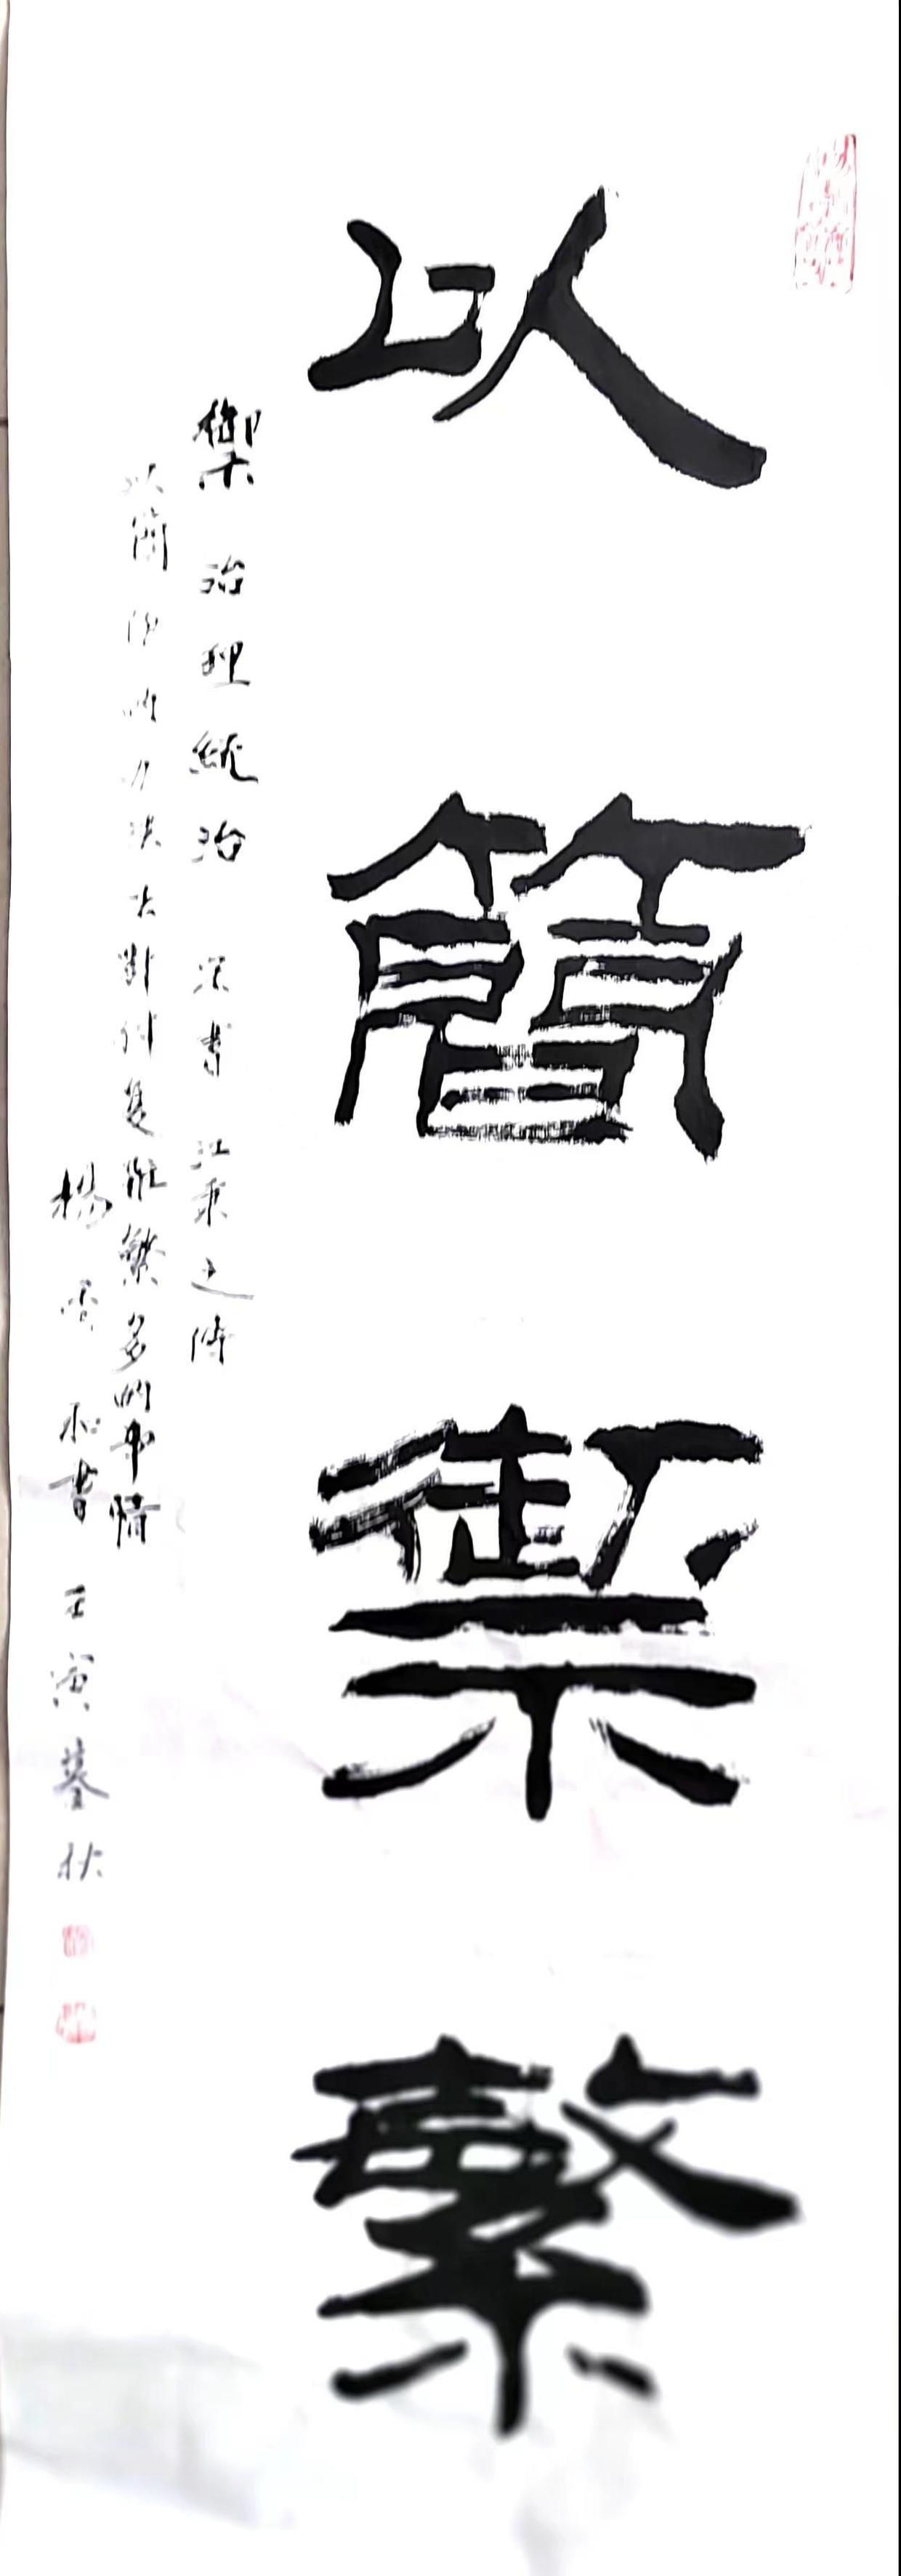 以簡禦繁
禦 治理統治 宋書 江秉之傳
以簡御的方法去對付复雜繁多的事情
楊雪松書 壬寅暮秋